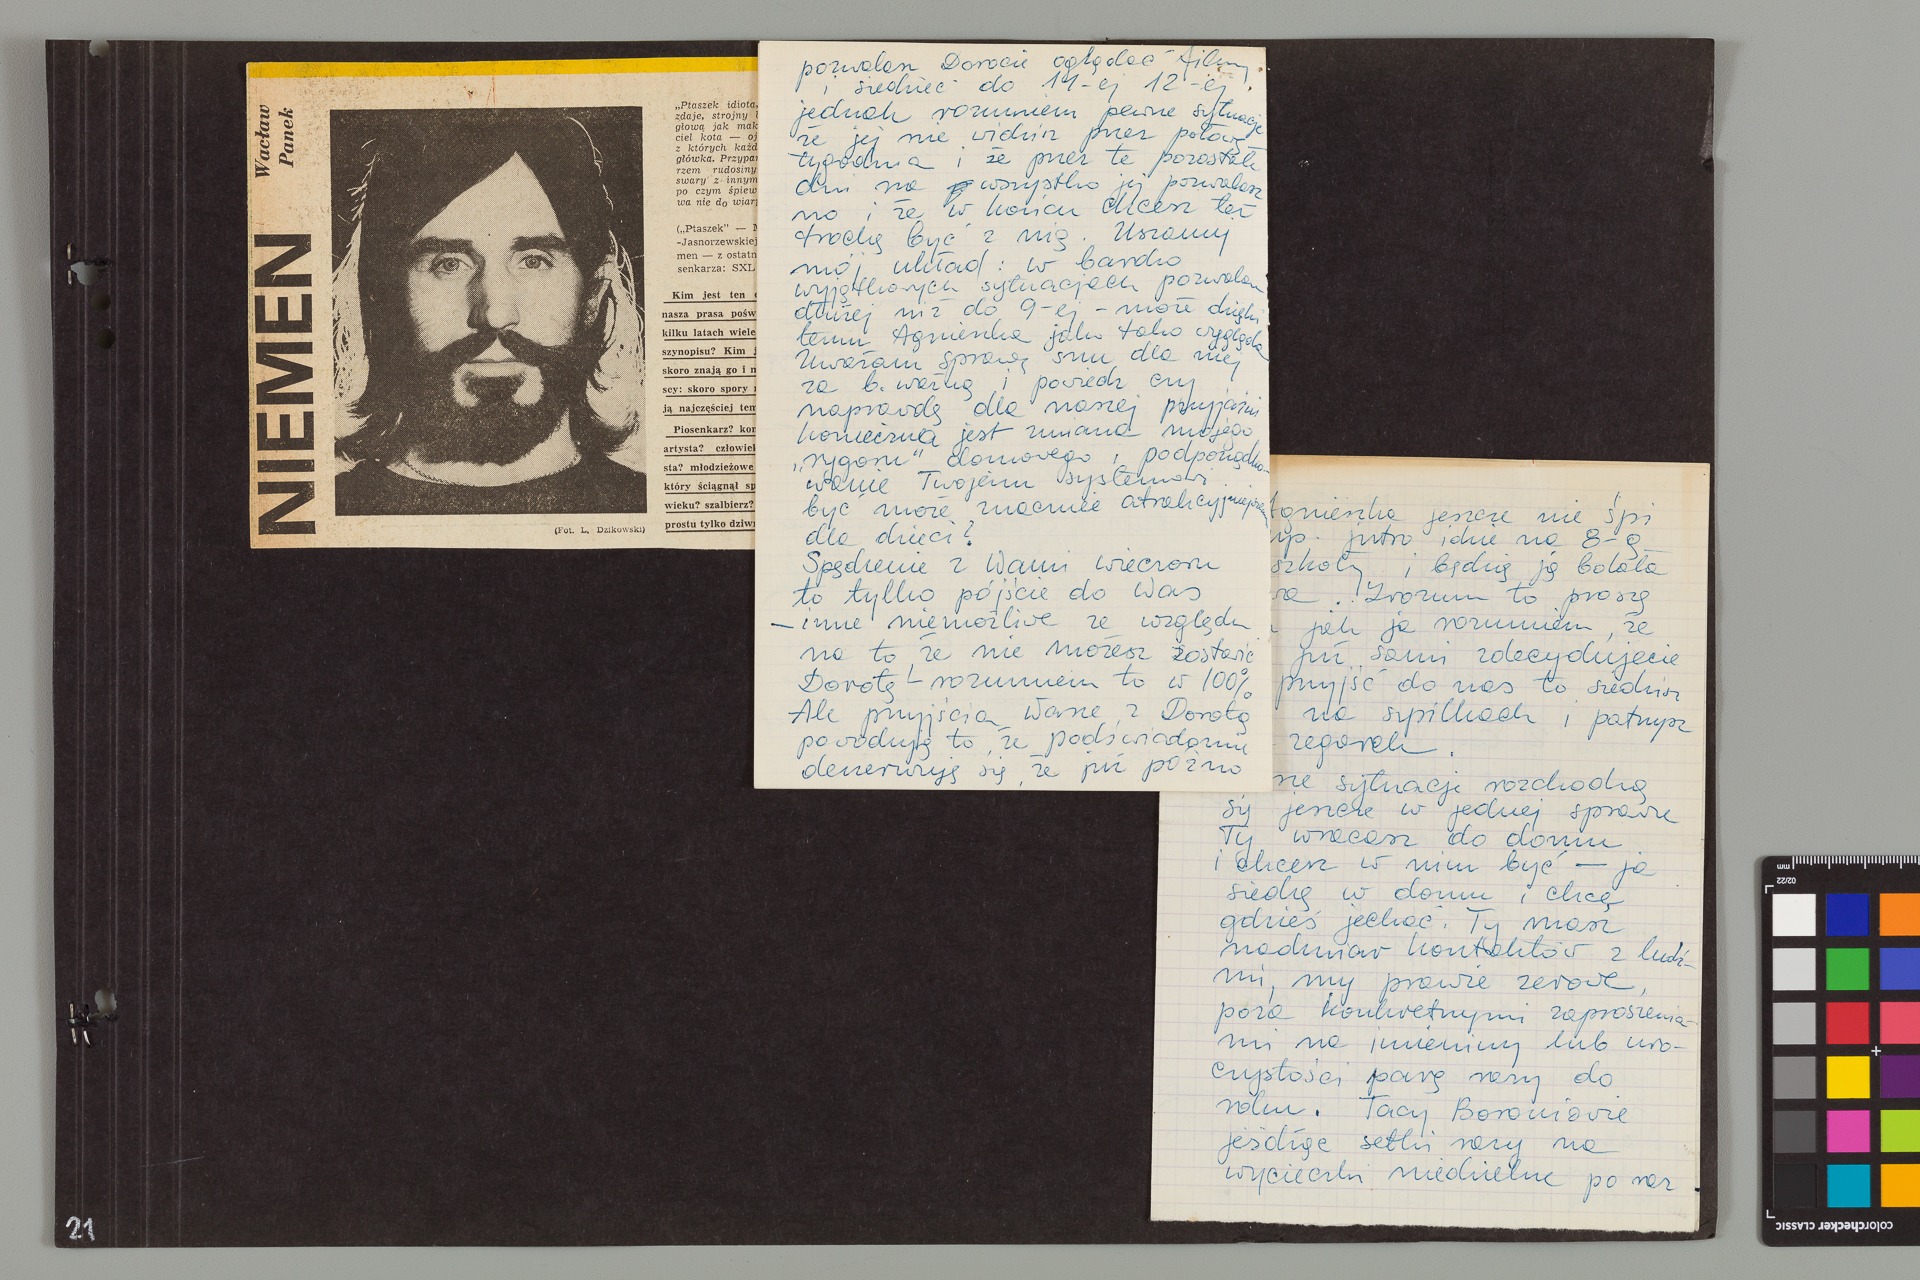 Wacław
Panek
NIEMEN
„Ptaszek idiota,
zdaje, strojny
głową jak mak
ciel kota — oj
z których każd
główka. Przypa
rzem rudosiny
swary z innym
po czym śpiew
wa nie do wiar
(„Ptaszek" — M
-Jasnorzewskiej
men — z ostatn
senkarza: SXL
Kim jest ten
nasza prasa pośw
kilku latach wiele
szynopisu? Kim j
skoro znają go i n
scy: skoro spory
ją najczęściej tem
Piosenkarz? kon
artysta? człowiek
sta? młodzieżowe
który ściągnął sp
wieku? szalbierz?
prostu tylko dziwn
(Fot. L. Dzikowski)
pozwalasz Dorocie oglądać filmy
i siedzieć do 11-ej 12-ej.
jednak rozumiem pewne sytuacje
że jej nie widzisz przez połowę
tygodnia i że przez te pozostałe
dni na wszystko jej pozwalasz
no i że w końcu chcesz też
trochę być z nią. Uszanuj
mój układ: w bardzo
wyjątkowych sytuacjach pozwalam
dłużej niż do 9-ej – może dzięki
temu Agnieszka jako tako wygląda
Uważam sprawę snu dla niej
za b. ważną i powiedz czy
naprawdę dla naszej przyjaźni
konieczna jest zmiana mojego
„rygoru" domowego i podporządko-
wanie Twojemu systemowi
być może znacznie atrakcyjniejszemu
dla dzieci?
Spędzenie z Wami wieczoru
to tylko pójście do Was
– inne niemożliwe ze względu
na to, że nie możesz zostawić
Dorotę – rozumiem to w 100%
Ale przyjścia Wasze z Dorotą
powodują to, że podświadomie
denerwuję się, że już późno
Agnieszka jeszcze nie śpi
np. jutro idzie na 8-ą
szkoły i będzie ją bolała
. Zrozum to proszę
jak ja rozumiem, że
już sami zdecydujecie
przyjść do nas to siedzisz
na szpilkach i patrzysz
zegarek.
sytuacje rozchodzą
się jeszcze w jednej sprawie
Ty wracasz do domu
i chcesz w nim być — ja
siedzę w domu i chcę
gdzieś jechać. Ty masz
nadmiar kontaktów z ludź-
mi, my prawie zerowe,
poza konkretnymi zaproszenia-
mi na imieniny lub uro-
czystości parę razy do
roku. Tacy Boroniowie
jeżdżąc setki razy na
wycieczki niedzielne po raz
21
mm
02/22
colorchecker CLASSIC